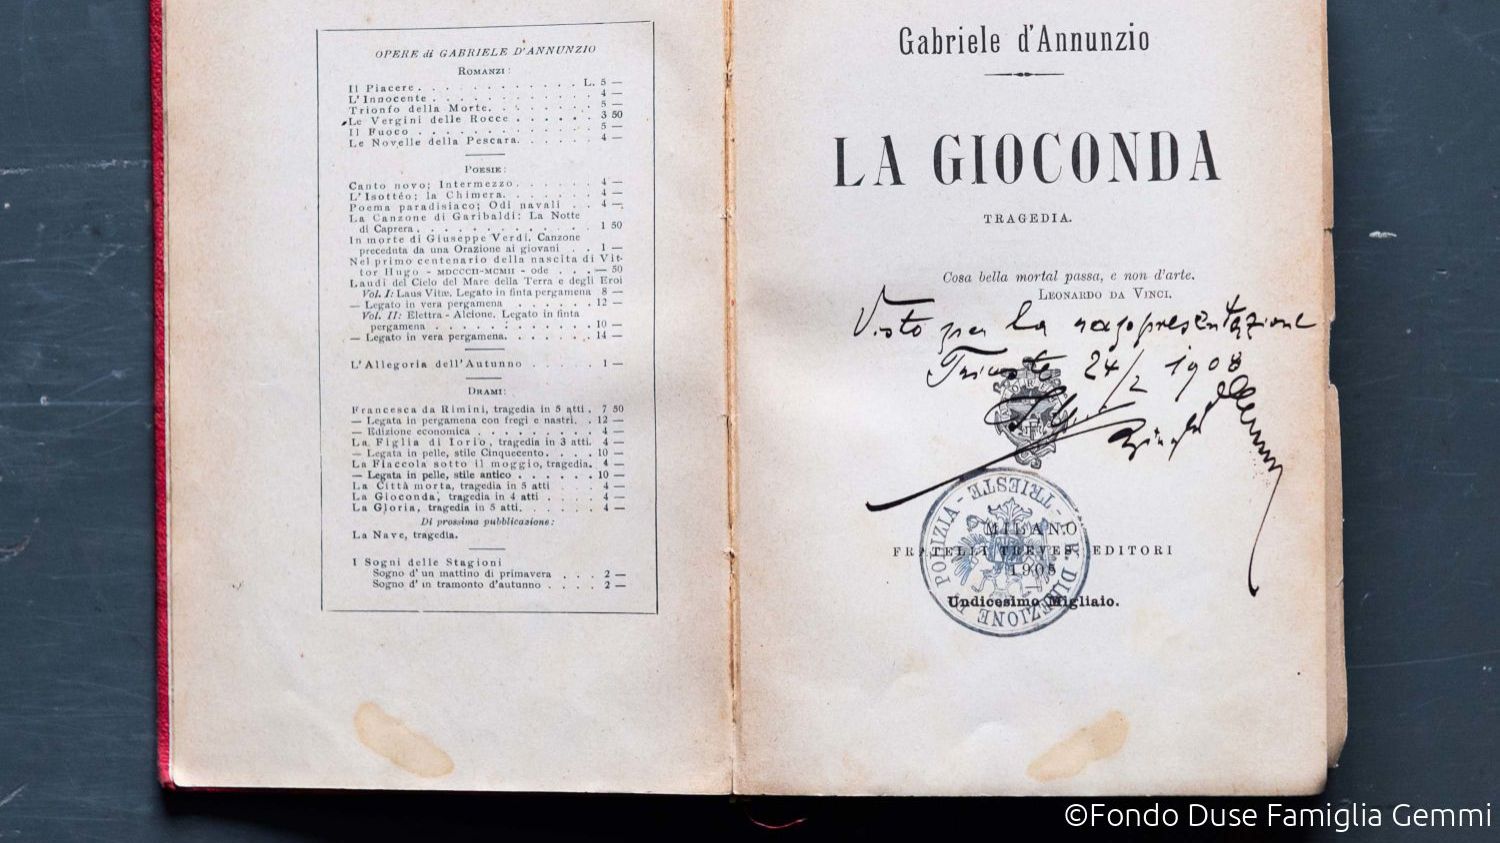 OPERE di GABRIELE D'ANNUNZIO
ROMANZI:
Il Piacere . . . . . . . . . . . . L. 5 —
L'Innocente . . . . . . . . . . . . 4 —
Trionfo della Morte. . . . . . . . 5 —
Le Vergini delle Rocce . . . . . . 3 50
Il Fuoco . . . . . . . . . . . . . 5 —
Le Novelle della Pescara. . . . . . 4 —
POESIE:
Canto novo; Intermezzo. . . . . . . 4 —
L'Isottèo; la Chimera. . . . . . . 4 —
Poema paradisiaco; Odi navali . . 4 —
La Canzone di Garibaldi: La Notte
di Caprera. . . . . . . . . . . . 1 50
In morte di Giuseppe Verdi. Canzone
preceduta da una Orazione ai giovani . . 1 —
Nel primo centenario della nascita di Vit-
tor Hugo - MDCCCII-MCMII - ode . . . — 50
Laudi del Cielo del Mare della Terra e degli Eroi
Vol. I: Laus Vitæ. Legato in finta pergamena 8 —
— Legato in vera pergamena . . . . . . 12 —
Vol. II: Elettra - Alcione. Legato in finta
pergamena . . . . . . . . . . . . 10 —
— Legato in vera pergamena. . . . . . . 14 —
L'Allegoria dell'Autunno . . . . . . 1 —
DRAMI:
Francesca da Rimini, tragedia in 5 atti . 7 50
— Legata in pergamena con fregi e nastri. . 12 —
— Edizione economica . . . . . . . . . 4 —
La Figlia di Iorio, tragedia in 3 atti. 4 —
— Legata in pelle, stile Cinquecento. . . . 10 —
La Fiaccola sotto il moggio, tragedia. 4 —
— Legata in pelle, stile antico . . . . . . 10 —
La Città morta, tragedia in 5 atti . . . 4 —
La Gioconda, tragedia in 4 atti . . . . 4 —
La Gloria, tragedia in 5 atti. . . . . . 4 —
Di prossima pubblicazione:
La Nave, tragedia.
I Sogni delle Stagioni
Sogno d'un mattino di primavera . . . 2 —
Sogno d'un tramonto d'autunno . . . . 2 —
Gabriele d'Annunzio
LA GIOCONDA
TRAGEDIA.
Cosa bella mortal passa, e non d'arte.
LEONARDO DA VINCI.
Visto per la rappresentazione
Trieste 24/2 1908
MILANO
FRATELLI TREVES, EDITORI
1905
Undicesimo Migliaio.
DIREZIONE DI POLIZIA - TRIESTE -
©Fondo Duse Famiglia Gemmi